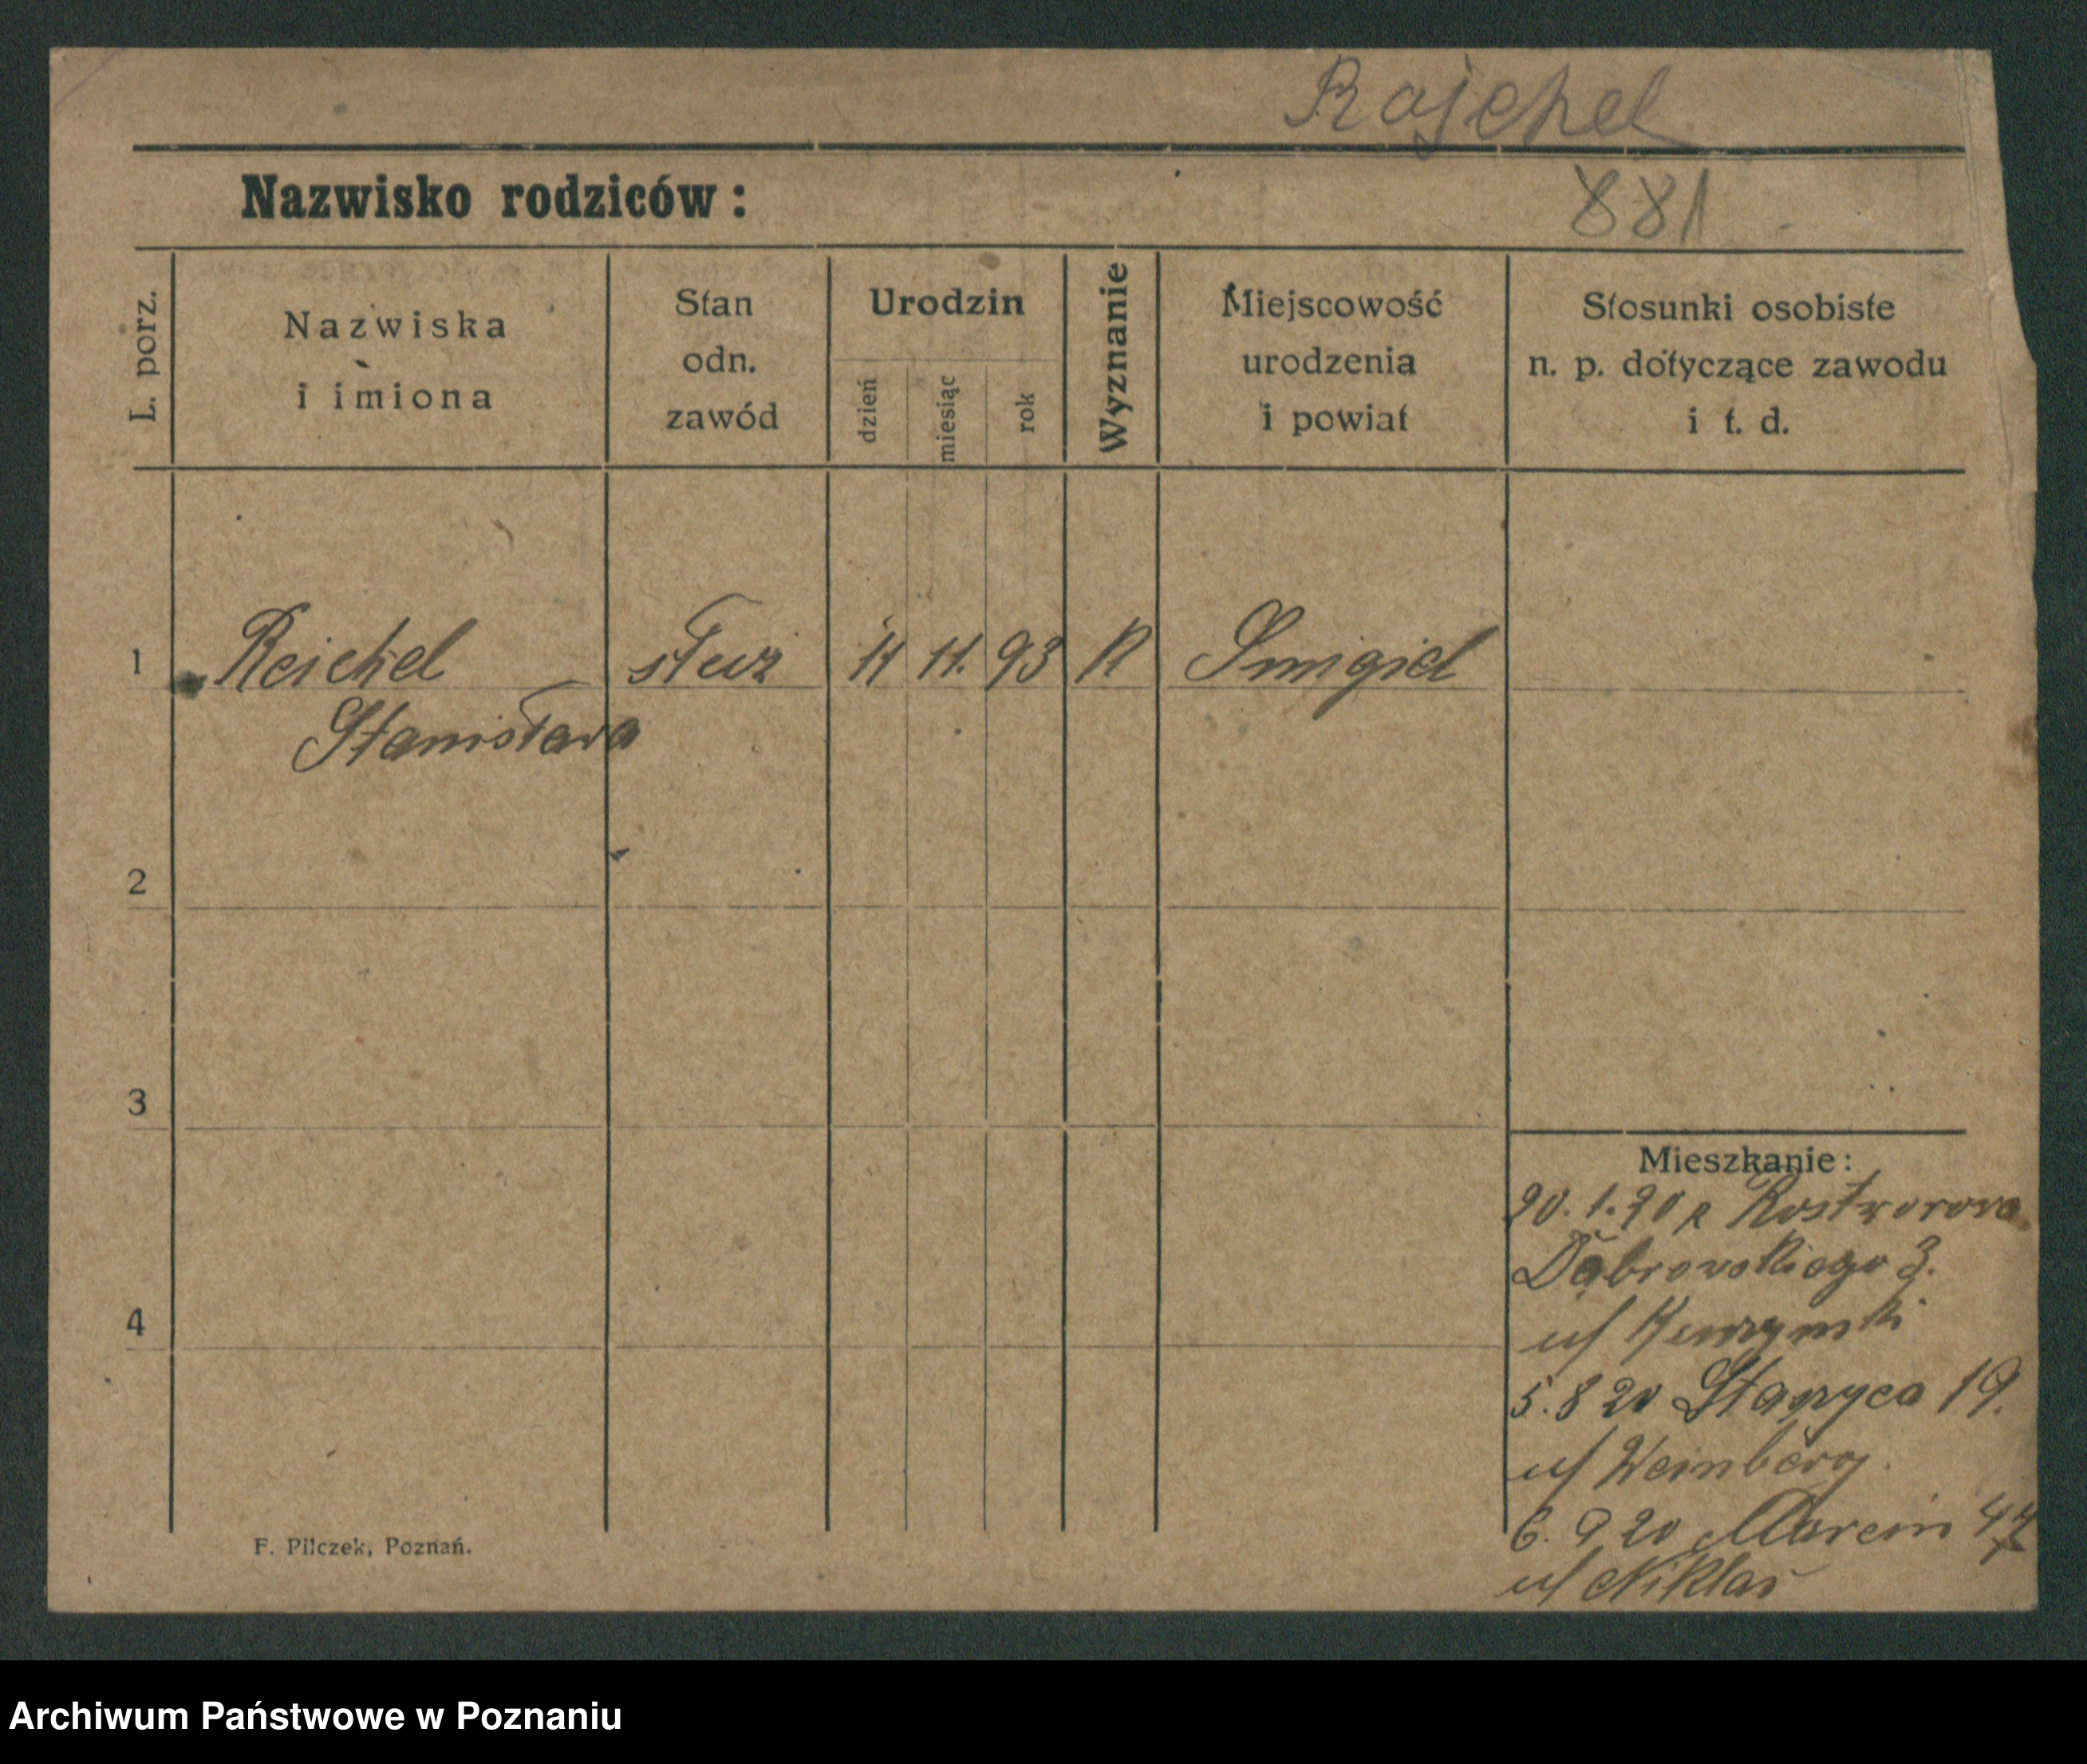 Rajchel
Nazwisko rodziców:
881
L. porz.
Nazwiska
i imiona
Stan
odn.
zawód
Urodzin
dzień
miesiąc
rok
Wyznanie
Miejscowość
urodzenia
i powiat
Stosunki osobiste
n. p. dotyczące zawodu
i t. d.
1 Reichel służ 11 11. 93 K Smigiel
Stanisława
2
3
4
Mieszkanie:
20. 1. 20 z Rostworowa
Dąbrowskiego 3.
u/
5. 8 20 Staszyca 19.
u/ Weinberg.
6. 9 20 Marcin 47
u/ Niklas
F. Pilczek, Poznań.
Archiwum Państwowe w Poznaniu